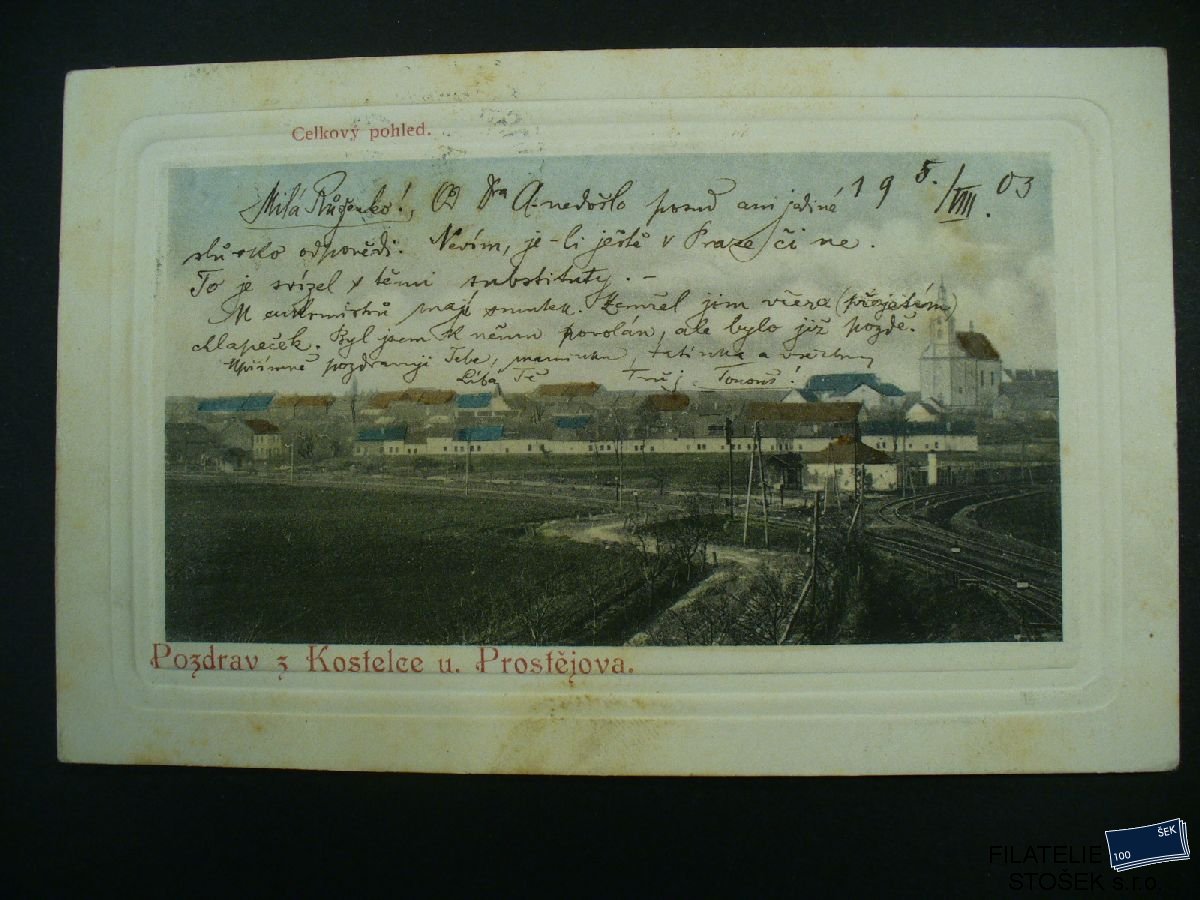 Celkový pohled.
19 5./VIII. 03
Milá Růženko!, Od Dra A. nedošlo posud ani jediné
slůvko odpovědi. Nevím, je-li ještě v Praze, či ne.
To je svízel s těmi substituty. –
mají smutek. Zemřel jim včera
chlapeček. Byl jsem k němu povolán, ale bylo již pozdě.
Upřímně pozdravuji Tebe, maminku, tatínka a všechny
Líbá Tě Tvůj !
Pozdrav z Kostelce u. Prostějova.
ŠEK
100
FILATELIE
STOŠEK s.r.o.